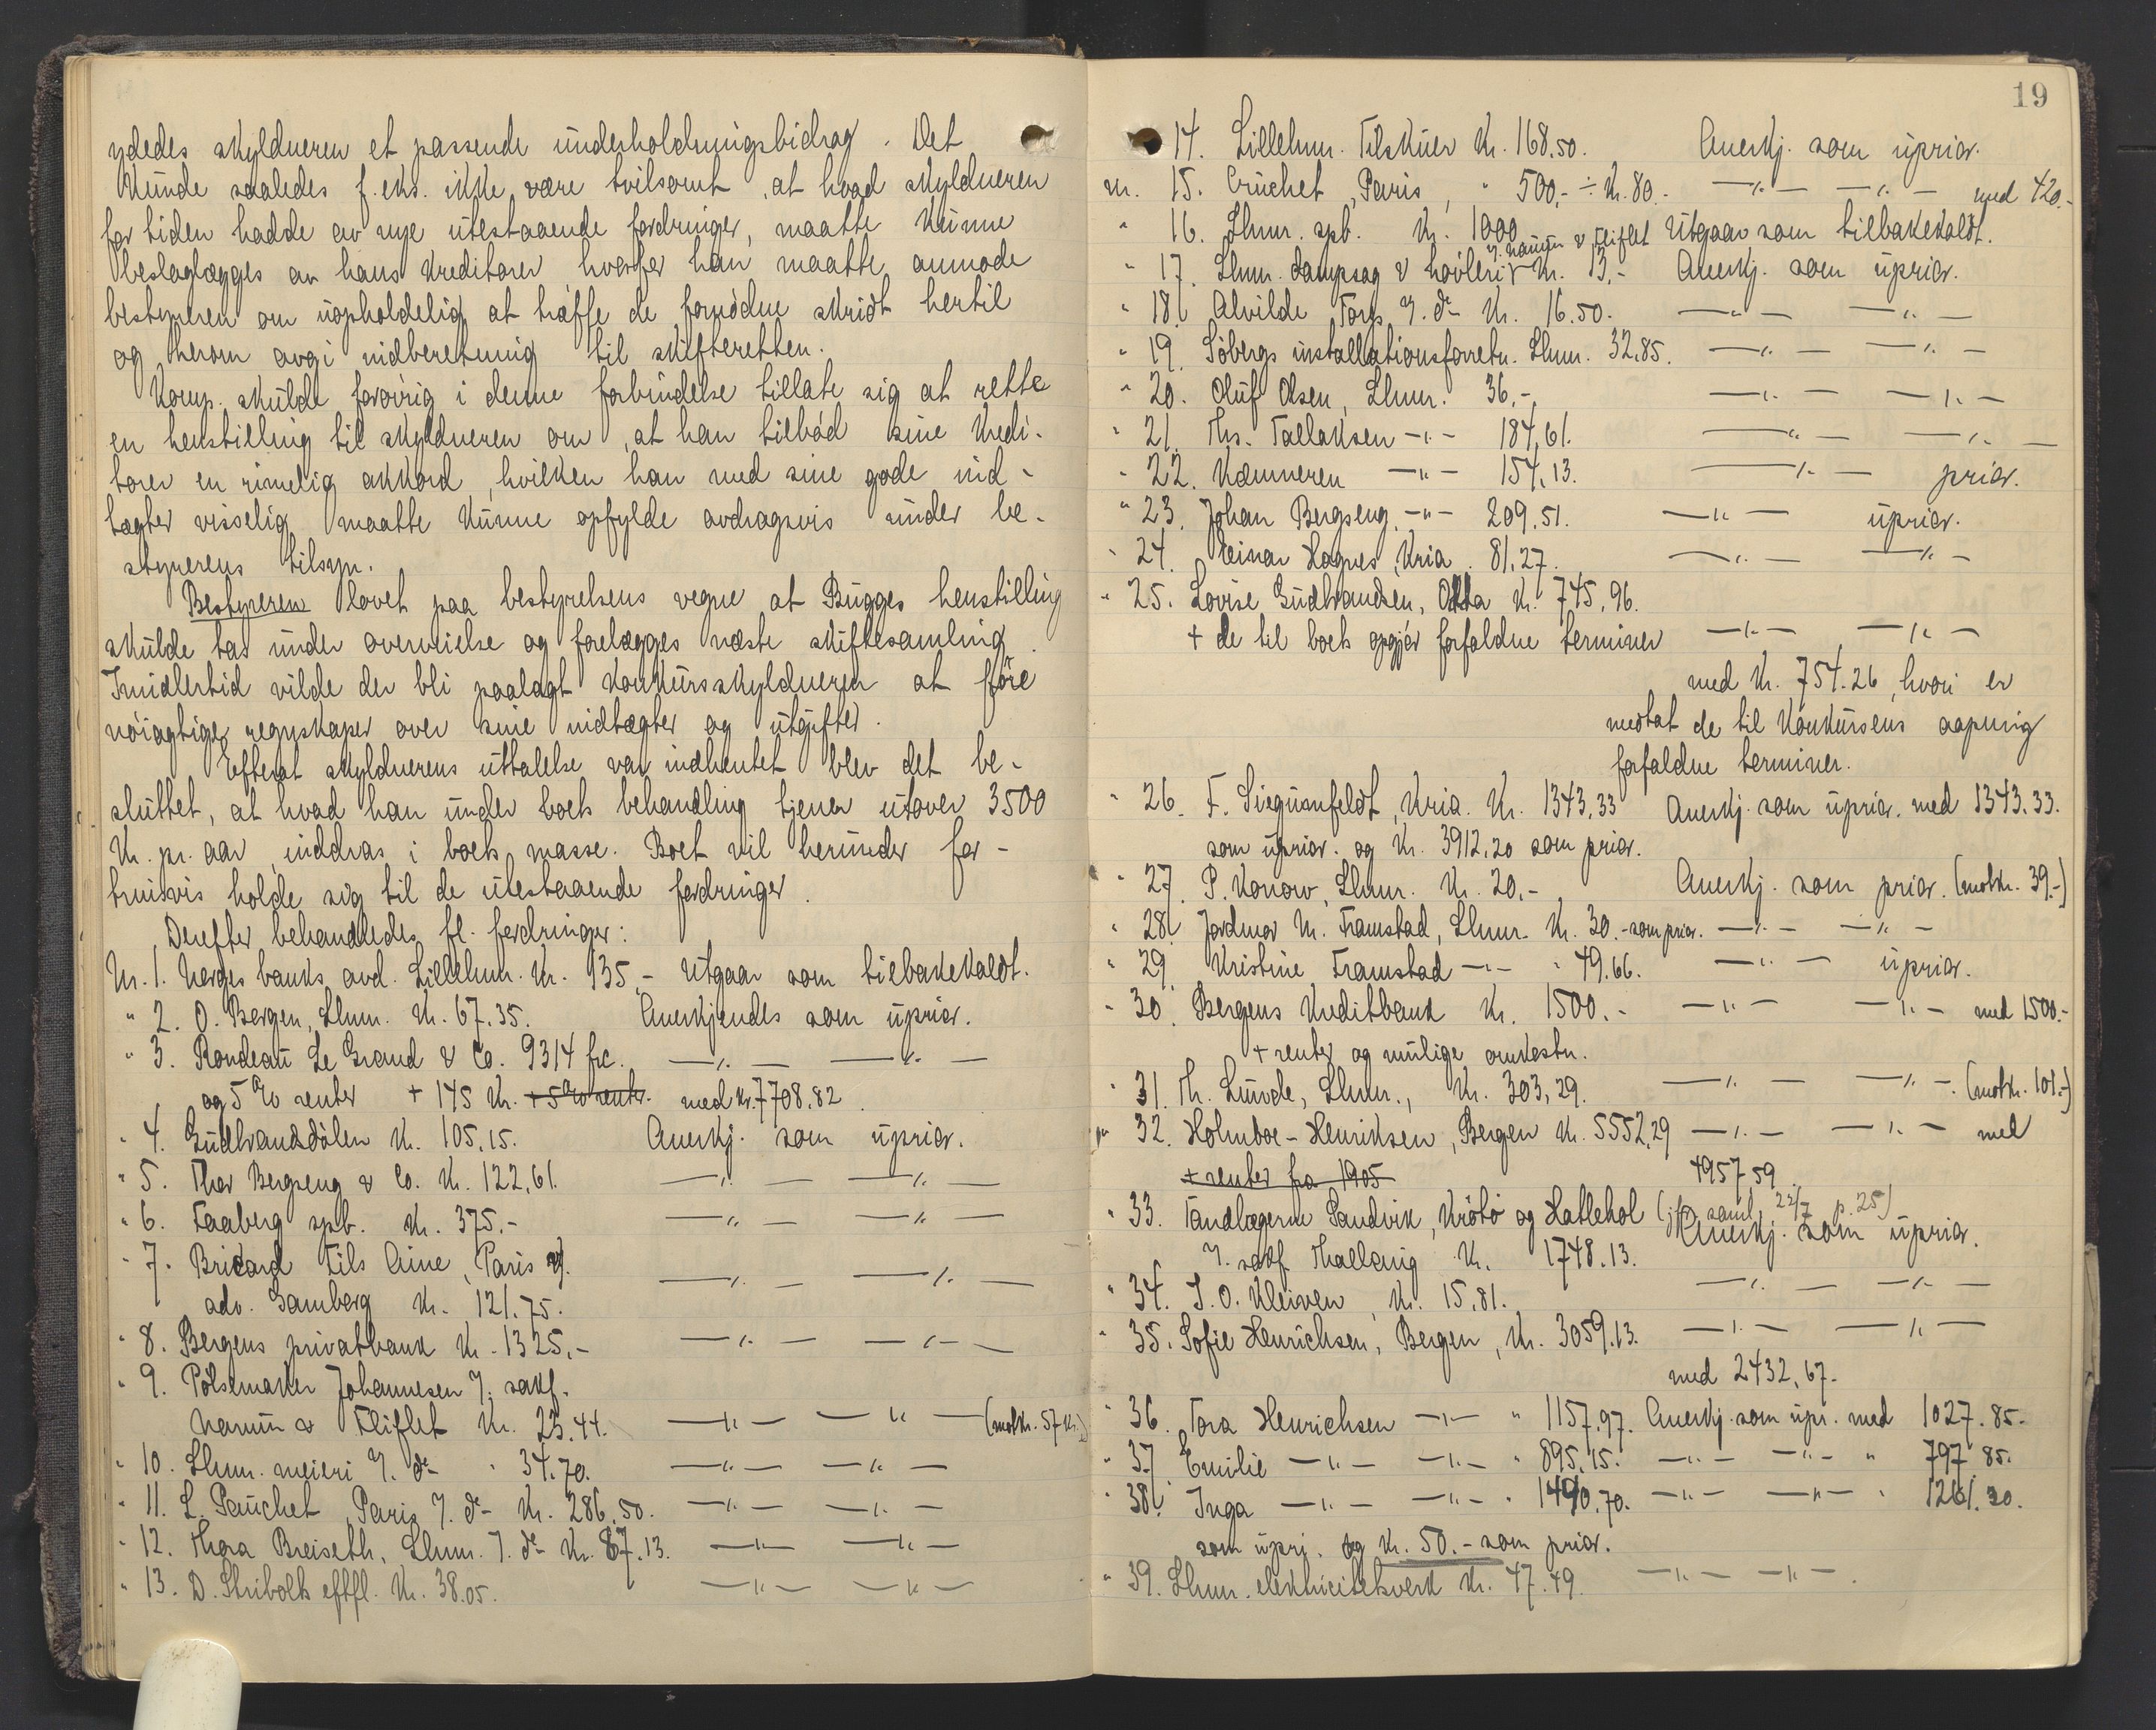 ydedes skyldneren et passende underholdningsbidrag. Det
kunde saaledes f. eks. ikke være tvilsomt, at hvad skyldneren
for tiden hadde av nye utestaaende fordringer, maatte kunne
beslaglægges av hans kreditorer hvorfor han maatte anmode
bestyreren om uopholdelig at træffe de fornødne skridt hertil
og herom avgi indberetning til skifteretten.
Komp. skulde forøvrig i denne forbindelse tillate sig at rette
en henstilling til skyldneren om, at han tilbød sine kredi-
torer en rimelig akkord, hvilken han med sine gode ind-
tægter visselig maatte kunne opfylde avdragsvis under be-
styrerens tilsyn.
Bestyreren lovet paa bestyrelsens vegne at Bugges henstilling
skulde tas under overveielse og forelægges næste skiftesamling.
Imidlertid vilde der bli paalagt konkursskyldneren at føre
nøiagtige regnskaper over sine indtægter og utgifter.
Efterat skyldnerens uttalelse var indhentet blev det be-
sluttet, at hvad han under boets behandling tjener utover 3500
Kr. pr. aar, inddras i boets masse. Boet vil herunder for-
trinsvis holde sig til de utestaaende fordringer.
Derefter behandledes fl. fordringer:
Nr. 1. Norges banks avd. Lillehmr. Kr. 935,- Utgaar som tilbakekaldt.
" 2. O. Bergen, Lhmr. Kr. 67.35. Anerkjendes som uprior.
" 3. Rondeau Le Grand & Co. 9314 frc. —"— —"—
og 5% renter + 145 Kr. + 5% rentr. med kr. 7708.82.
" 4. Gudbrandsdølen Kr. 105.15. Anerkj. som uprior.
" 5. Thor Bergseng & Co. Kr. 122,61. —"— —"—
" 6. Faaberg spb. Kr. 375.- —"— —"—
" 7. Bricard Fils Aine, Paris v.
adv. Gamberg Kr. 121.75. —"— —"—
" 8. Bergens privatbank Kr. 1325,- —"— —"—
" 9. Pølsemaker Johannesen v. sakf.
Narum & Fliflet Kr. 23.44. —"— —"— (motkr. 57 kr.)
" 10. Lhmr. meieri v. do " 34.70. —"— —"—
" 11. L. Pauchet, Paris v. do Kr. 286,50. —"— —"—
" 12. Thora Breiseth, Lhmr. v. do Kr. 87.13. —"— —"—
" 13. D. Stribolts efftfl. Kr. 38.05. —"— —"—
19
14. Lillehmr. Tilskuer Kr. 168.50. Anerkj. som uprior.
Nr. 15. Cruchet, Paris, " 500,- ÷ Kr. 80.- —"— —"— med 420.-
" 16. Lhmr. spb. Kr. 1000 Utgaar som tilbakekaldt.
v. Narum & Fliflet
" 17. Lhmr. dampsag & høvleri Kr. 13,- Anerkj. som uprior.
" 18. Alvilde Torp v. do Kr. 16.50. —"— —"—
" 19. Søbergs installationsforretn. Lhmr. 32.85. —"— —"—
" 20. Oluf Olsen, Lhmr. 36,- —"— —"—
" 21. Ths. Tallaksen —"— 184,61. —"— —"—
" 22. Kæmneren —"— 154,13. —"— prior.
" 23. Johan Bergseng —"— 209.51. —"— uprior.
" 24. Einar Hagnes, Kria. 81,27. —"— —"—
" 25. Lovise Gudbrandsen, Otta Kr. 745,96.
+ de til boets opgjør forfaldne terminer —"— —"—
med Kr. 754.26, hvori er
medtat de til konkursens aapning
forfaldne terminer.
" 26. F. Siegumfeldt, Kria. Kr. 1343,33 Anerkj. som uprior. med 1343.33.
som uprior. og Kr. 3912,20 som prior.
" 27. P. Konow, Lhmr. Kr. 20,- Anerkj. som prior. (motkr. 39.-)
" 28. Jordmor M. Framstad, Lhmr. Kr. 30.- som prior. —"— —"—
" 29. Kristine Framstad —"— " 49.66. —"— uprior.
" 30. Bergens Kreditbank Kr. 1500.- —"— —"— med 1500.-
+ renter og mulige omkostn.
" 31. Th. Lunde, Lhmr., Kr. 303,29. —"— —"—. (motkr. 101.-)
" 32. Holmboe-Henriksen, Bergen Kr. 5552,29 —"— —"— med
+ renter fra 1905 4957,59
" 33. Tandlægerne Sandvik, Krøtø og Hatlehol (jfr. saml. 22/7 p. 25)
v. sakf. Thallaug Kr. 1748.13. Anerkj. som uprior.
" 34. J. O. Kleiven, Kr. 15,81. —"— —"—
" 35. Sofie Henrichsen, Bergen, Kr. 3059.13. —"— —"—
med 2432,67.
" 36. Tora Henrichsen —"— " 1157,97. Anerkj. som upr. med 1027.85.
" 37. Emilie —"— —"— " 895,15. —"— —"— " 797 85.
" 38. Inga —"— —"— " 1490,70. —"— —"— " 1261.30.
som upri. og kr. 50.- som prior.
" 39. Lhmr. elektricitetsverk Kr. 47.49. —"— —"—.